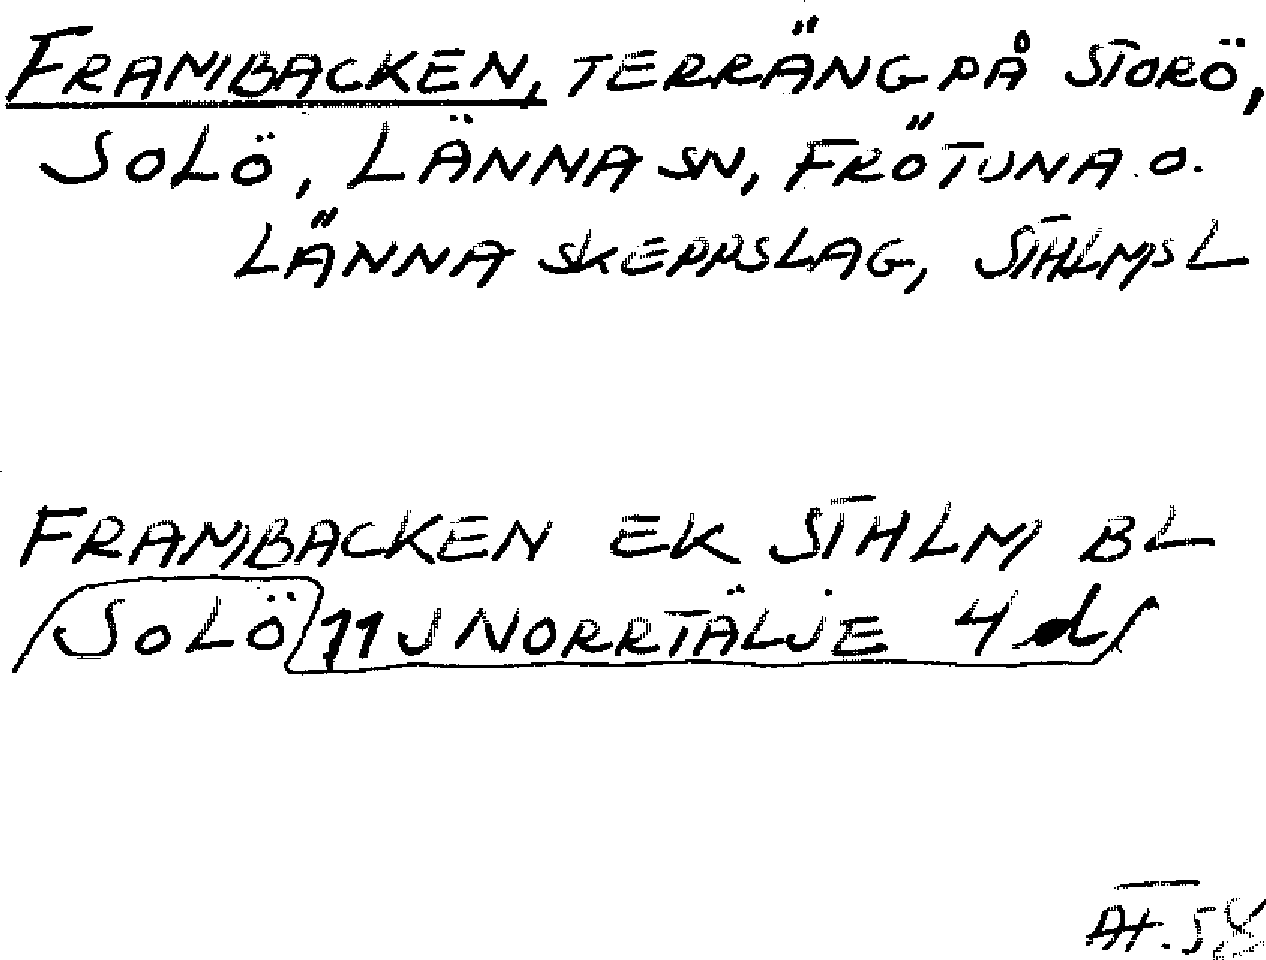 FRAMBACKEN, TERRÄNG PÅ STORÖ,
SOLÖ, LÄNNA SN, FRÖTUNA O.
LÄNNA SKEPPSLAG, STHLMS L
FRAMBACKEN EK STHLM BL
SOLÖ 11 J NORRTÄLJE 4 d
AT. 58